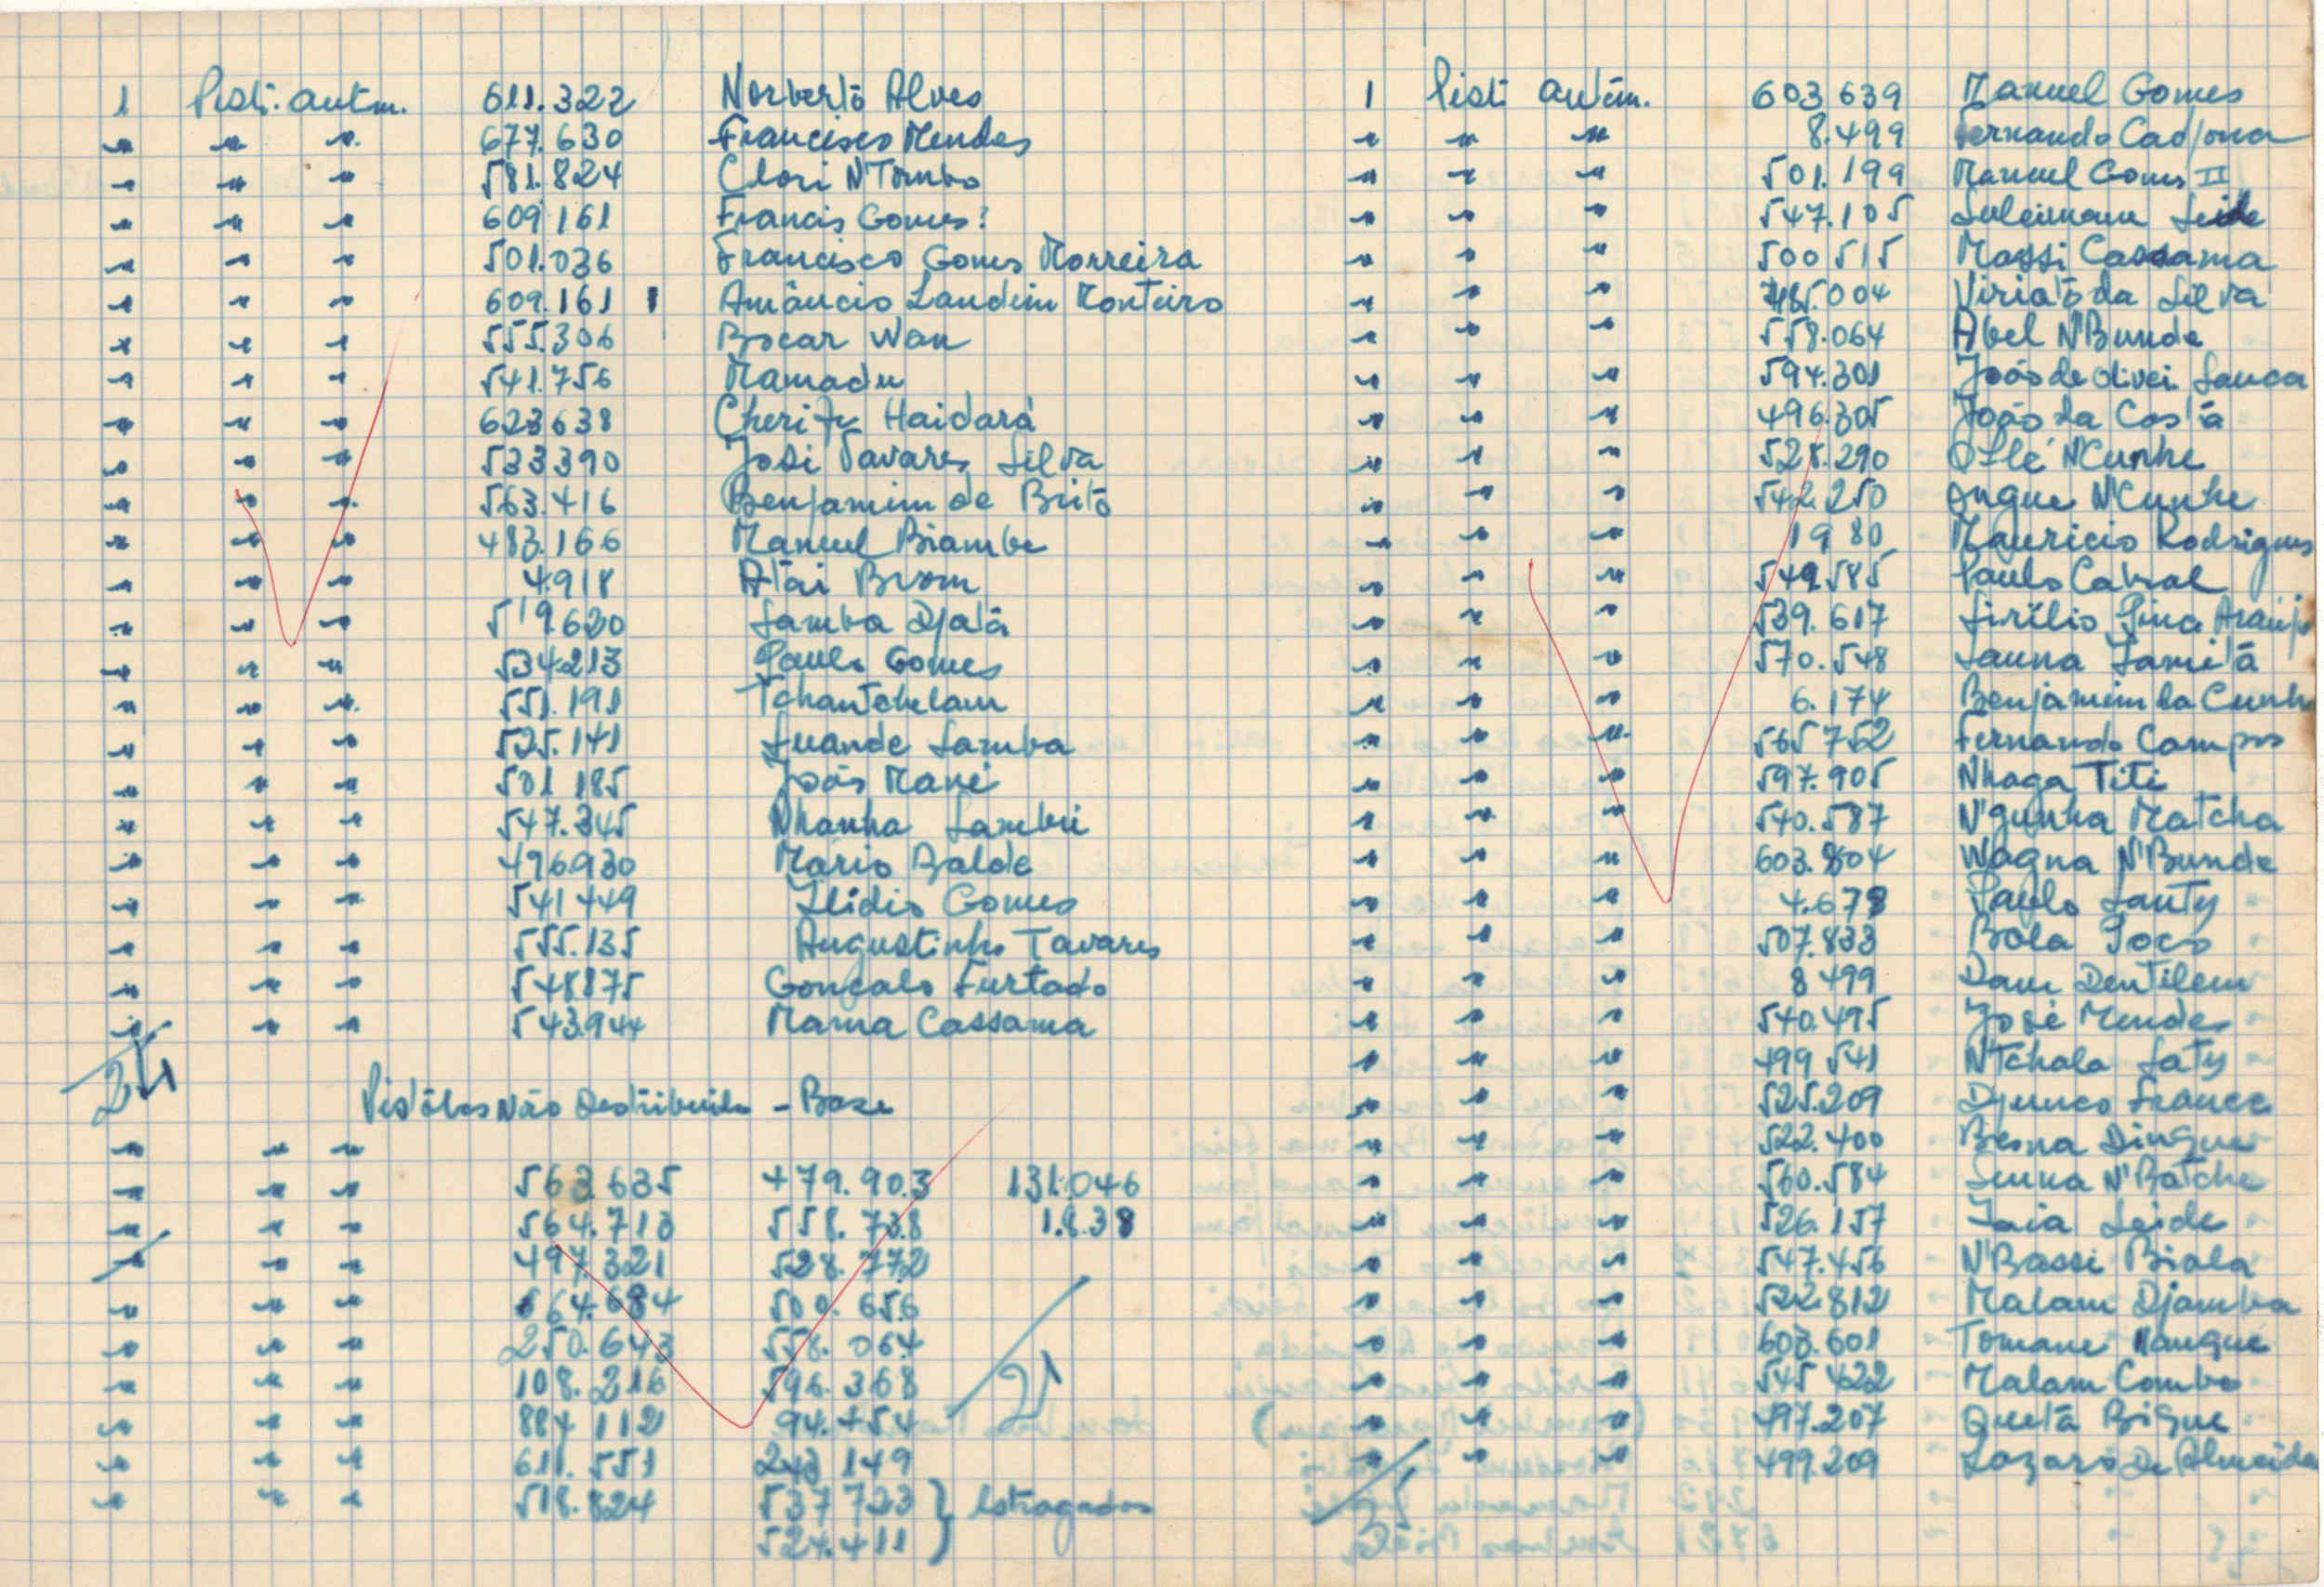 1 Pist. autm. 611.322 Norberto Alves
" " " 677.630 Francisco Mendes
" " " 581.824 Clori N'Tombo
" " " 609161 Francis Gomes?
" " " 501.036 Francisco Gomes Morreira
" " " 609.161 Amâncio Landim Monteiro
" " " 555.306 Bocar Wan
" " " 541.756 Mamadu
" " " 623638 Cherife Haidará
" " " 533390 José Tavares Silva
" " " 563.416 Benjamim de Brito
" " " 483.166 Manuel Biambe
" " " 4.918 Atai Brom
" " " 519.620 Samba Djaló
" " " 534213 Paulo Gomes
" " " 551.191 Tchantchelam
" " " 525.141 Suande Samba
" " " 501185 João Mané
" " " 547.345 Nhanha Sambú
" " " 496930 Mário Balde
" " " 541449 Ilidio Gomes
" " " 555.135 Augustinho Tavares
" " " 548875 Gonçalo Furtado
" " " 543.944 Mama Cassama
24
Pistolas Não Destribuida - Base
" " "
" " " 563.635 479.903 131.046
" " " 564.713 558.738 1.8.38
" " " 497.321 528.772
" " " 564.684 500.656
" " " 250.643 558.064
" " " 108.216 596.368 21
" " " 884112 94.454
" " " 611.551 243149
" " " 518.824 537723 } Estragadas
524.411
1 Pist. autm. 603639 Manuel Gomes
" " " 8.499 Fernando Cadjona
" " " 501.199 Manuel Gomes II
" " " 547.105 Suleimane Seide
" " " 500515 Massi Cassama
" " " 485.004 Viriato da Silva
" " " 558.064 Abel N'Bunde
" " " 594.301 João de Olivei Sanca
" " " 496.305 João da Costa
" " " 528.290 Oflé N'Cunhe
" " " 542.250 Ongue N'Cunhe
" " " 1980 Mauricio Rodrigues
" " " 549.585 Paulo Cabral
" " " 539.617 Sirilio Pina Araujo
" " " 570.548 Sauna Samitá
" " " 6.174 Benjamim da Cunh
" " " 565752 Fernando Campos
" " " 597.905 Nhaga Titi
" " " 540.587 N'gunha Matcha
" " " 603.804 Wagna N'Bunde
" " " 4.678 Paulo Santy
" " " 507.833 Bola Poco
" " " 8499 Dam Dentilem
" " " 540.495 José Mendes
" " " 499541 N'Tchala Saty
" " " 525.209 Djunco Franca
" " " 522.400 Besna Dingue
" " " 560.584 Sunna N'Batche
" " " 526.157 Iaia Seide
" " " 547.456 N'Bassi Biala
" " " 522.812 Malam Djamba
" " " 603.601 Tomane Nanque
" " " 545422 Malam Combo
" " " 497.207 Quetá Bigue
" " " 499.209 Lazaro De Almeida
35